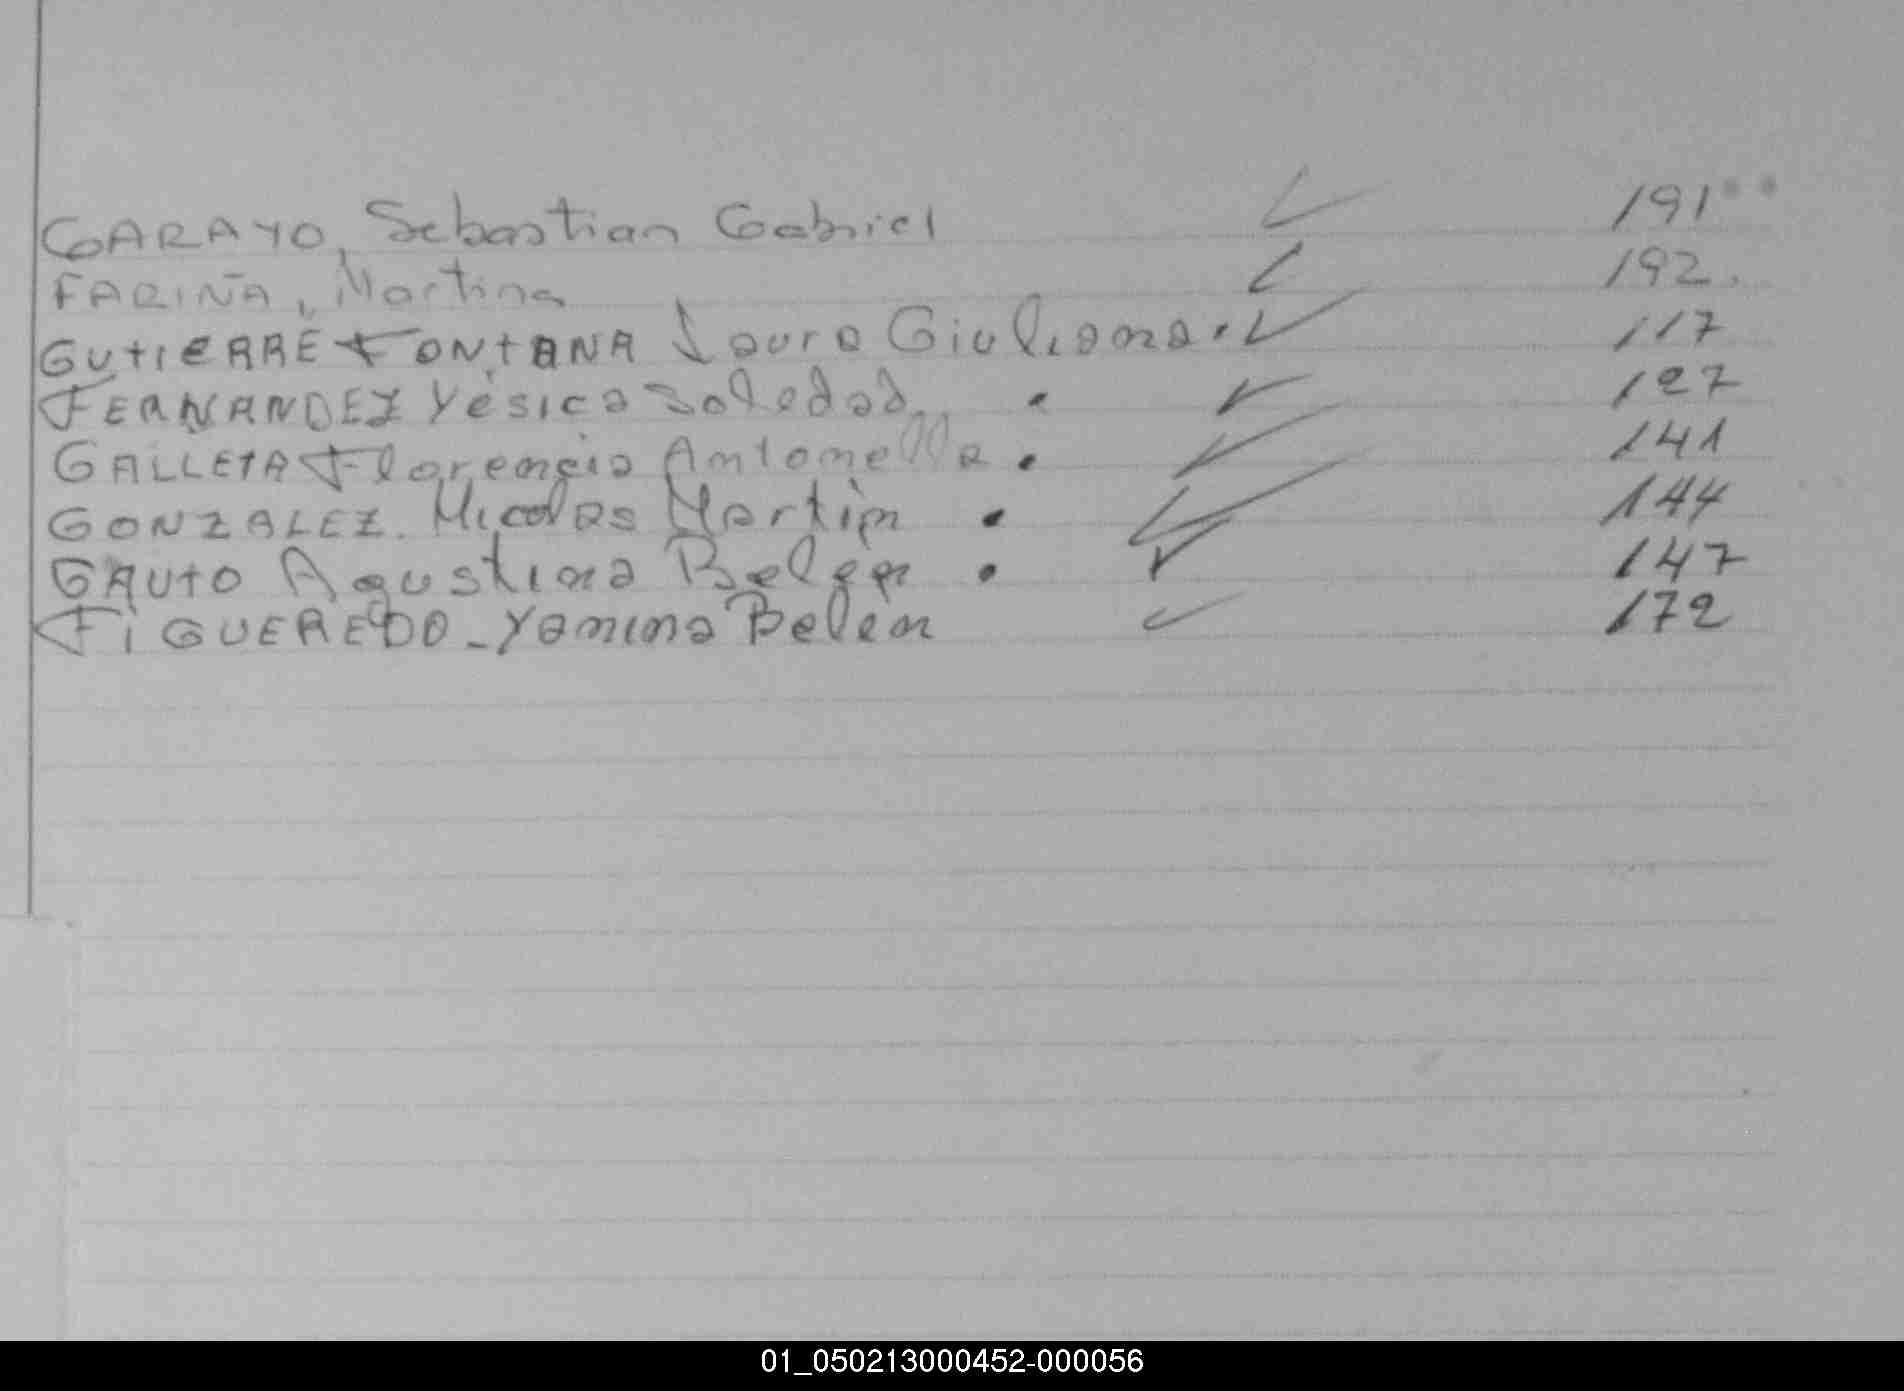 GARAYO, Sebastian Gabriel ✓ 191
FARIÑA, Martina ✓ 192.
GUTIERRE FONTANA Laura Giuliana. ✓ 117
FERNANDEZ Yésica Soledad. ✓ 127
GALLETA Florencia Antonella. ✓ 141
GONZALEZ. Nicolas Martin . ✓ 144
GAUTO Agustina Belén . ✓ 147
FIGUEREDO - Yanina Belén ✓ 172
01_050213000452-000056